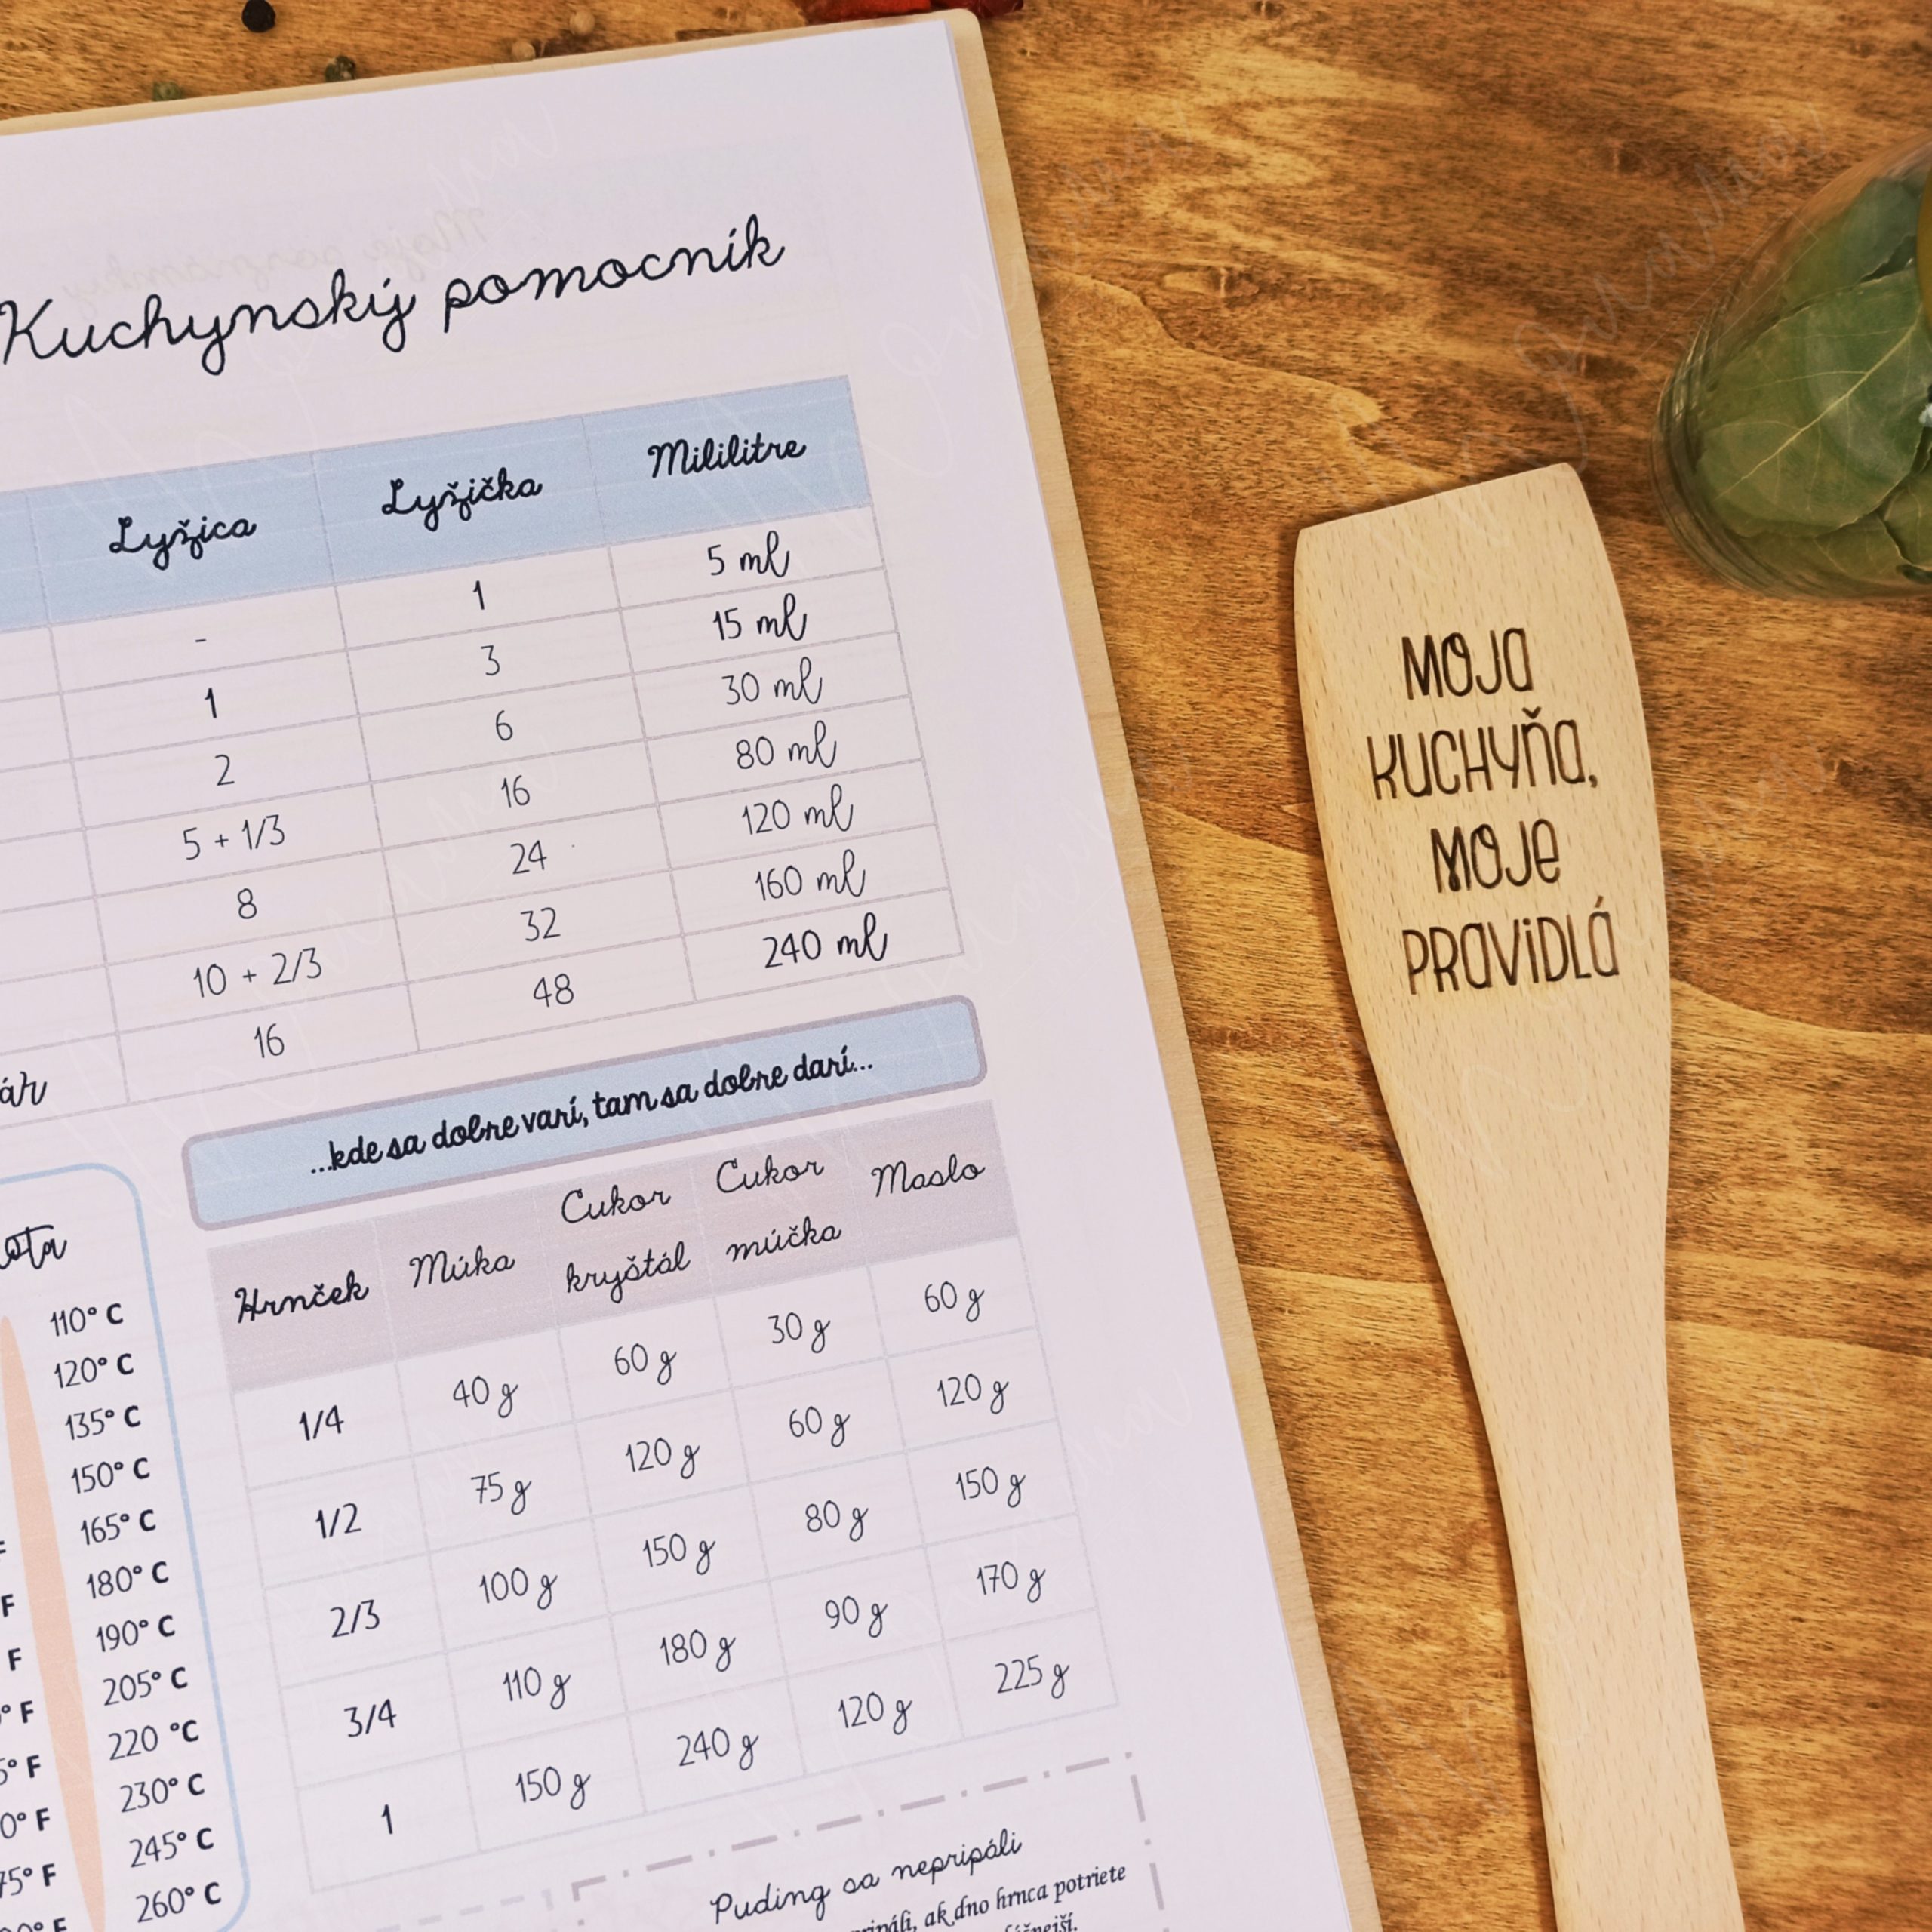 Kuchynský pomocník
Lyžica Lyžička Mililitre
- 1 5 ml
1 3 15 ml
2 6 30 ml
5 + 1/3 16 80 ml
8 24 120 ml
10 + 2/3 32 160 ml
16 48 240 ml
...kde sa dobre varí, tam sa dobre darí...
Hrnček Múka Cukor kryštál Cukor múčka Maslo
1/4 40 g 60 g 30 g 60 g
1/2 75 g 120 g 60 g 120 g
2/3 100 g 150 g 80 g 150 g
3/4 110 g 180 g 90 g 170 g
1 150 g 240 g 120 g 225 g
110° C
120° C
135° C
150° C
165° C
180° C
190° C
205° C
220 °C
230° C
245° C
260° C
F
F
F
F
F
F
F
F
Puding sa nepripáli
ak dno hrnca potriete
MOJA
KUCHYŇA,
MOJE
PRAVIDLÁ